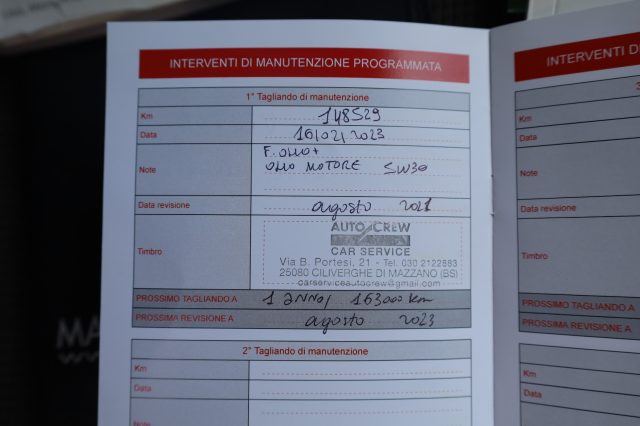 INTERVENTI DI MANUTENZIONE PROGRAMMATA
1° Tagliando di manutenzione
Km 148529
Data 16/02/2023
Note F. OLIO +
OLIO MOTORE 5W30
Data revisione agosto 2021
Timbro
AUTO CREW
CAR SERVICE
Via B. Portesi, 21 - Tel. 030 2122883
25080 CILIVERGHE DI MAZZANO (BS)
carserviceautocrew@gmail.com
PROSSIMO TAGLIANDO A 1 ANNO/ 163000 km
PROSSIMA REVISIONE A agosto 2023
2° Tagliando di manutenzione
Km
Data
Note
INTERVENTI DI
3
Km
Data
Note
Data revisione
Timbro
PROSSIMO TAGLIANDO A
PROSSIMA REVISIONE A
Km
Data
MA